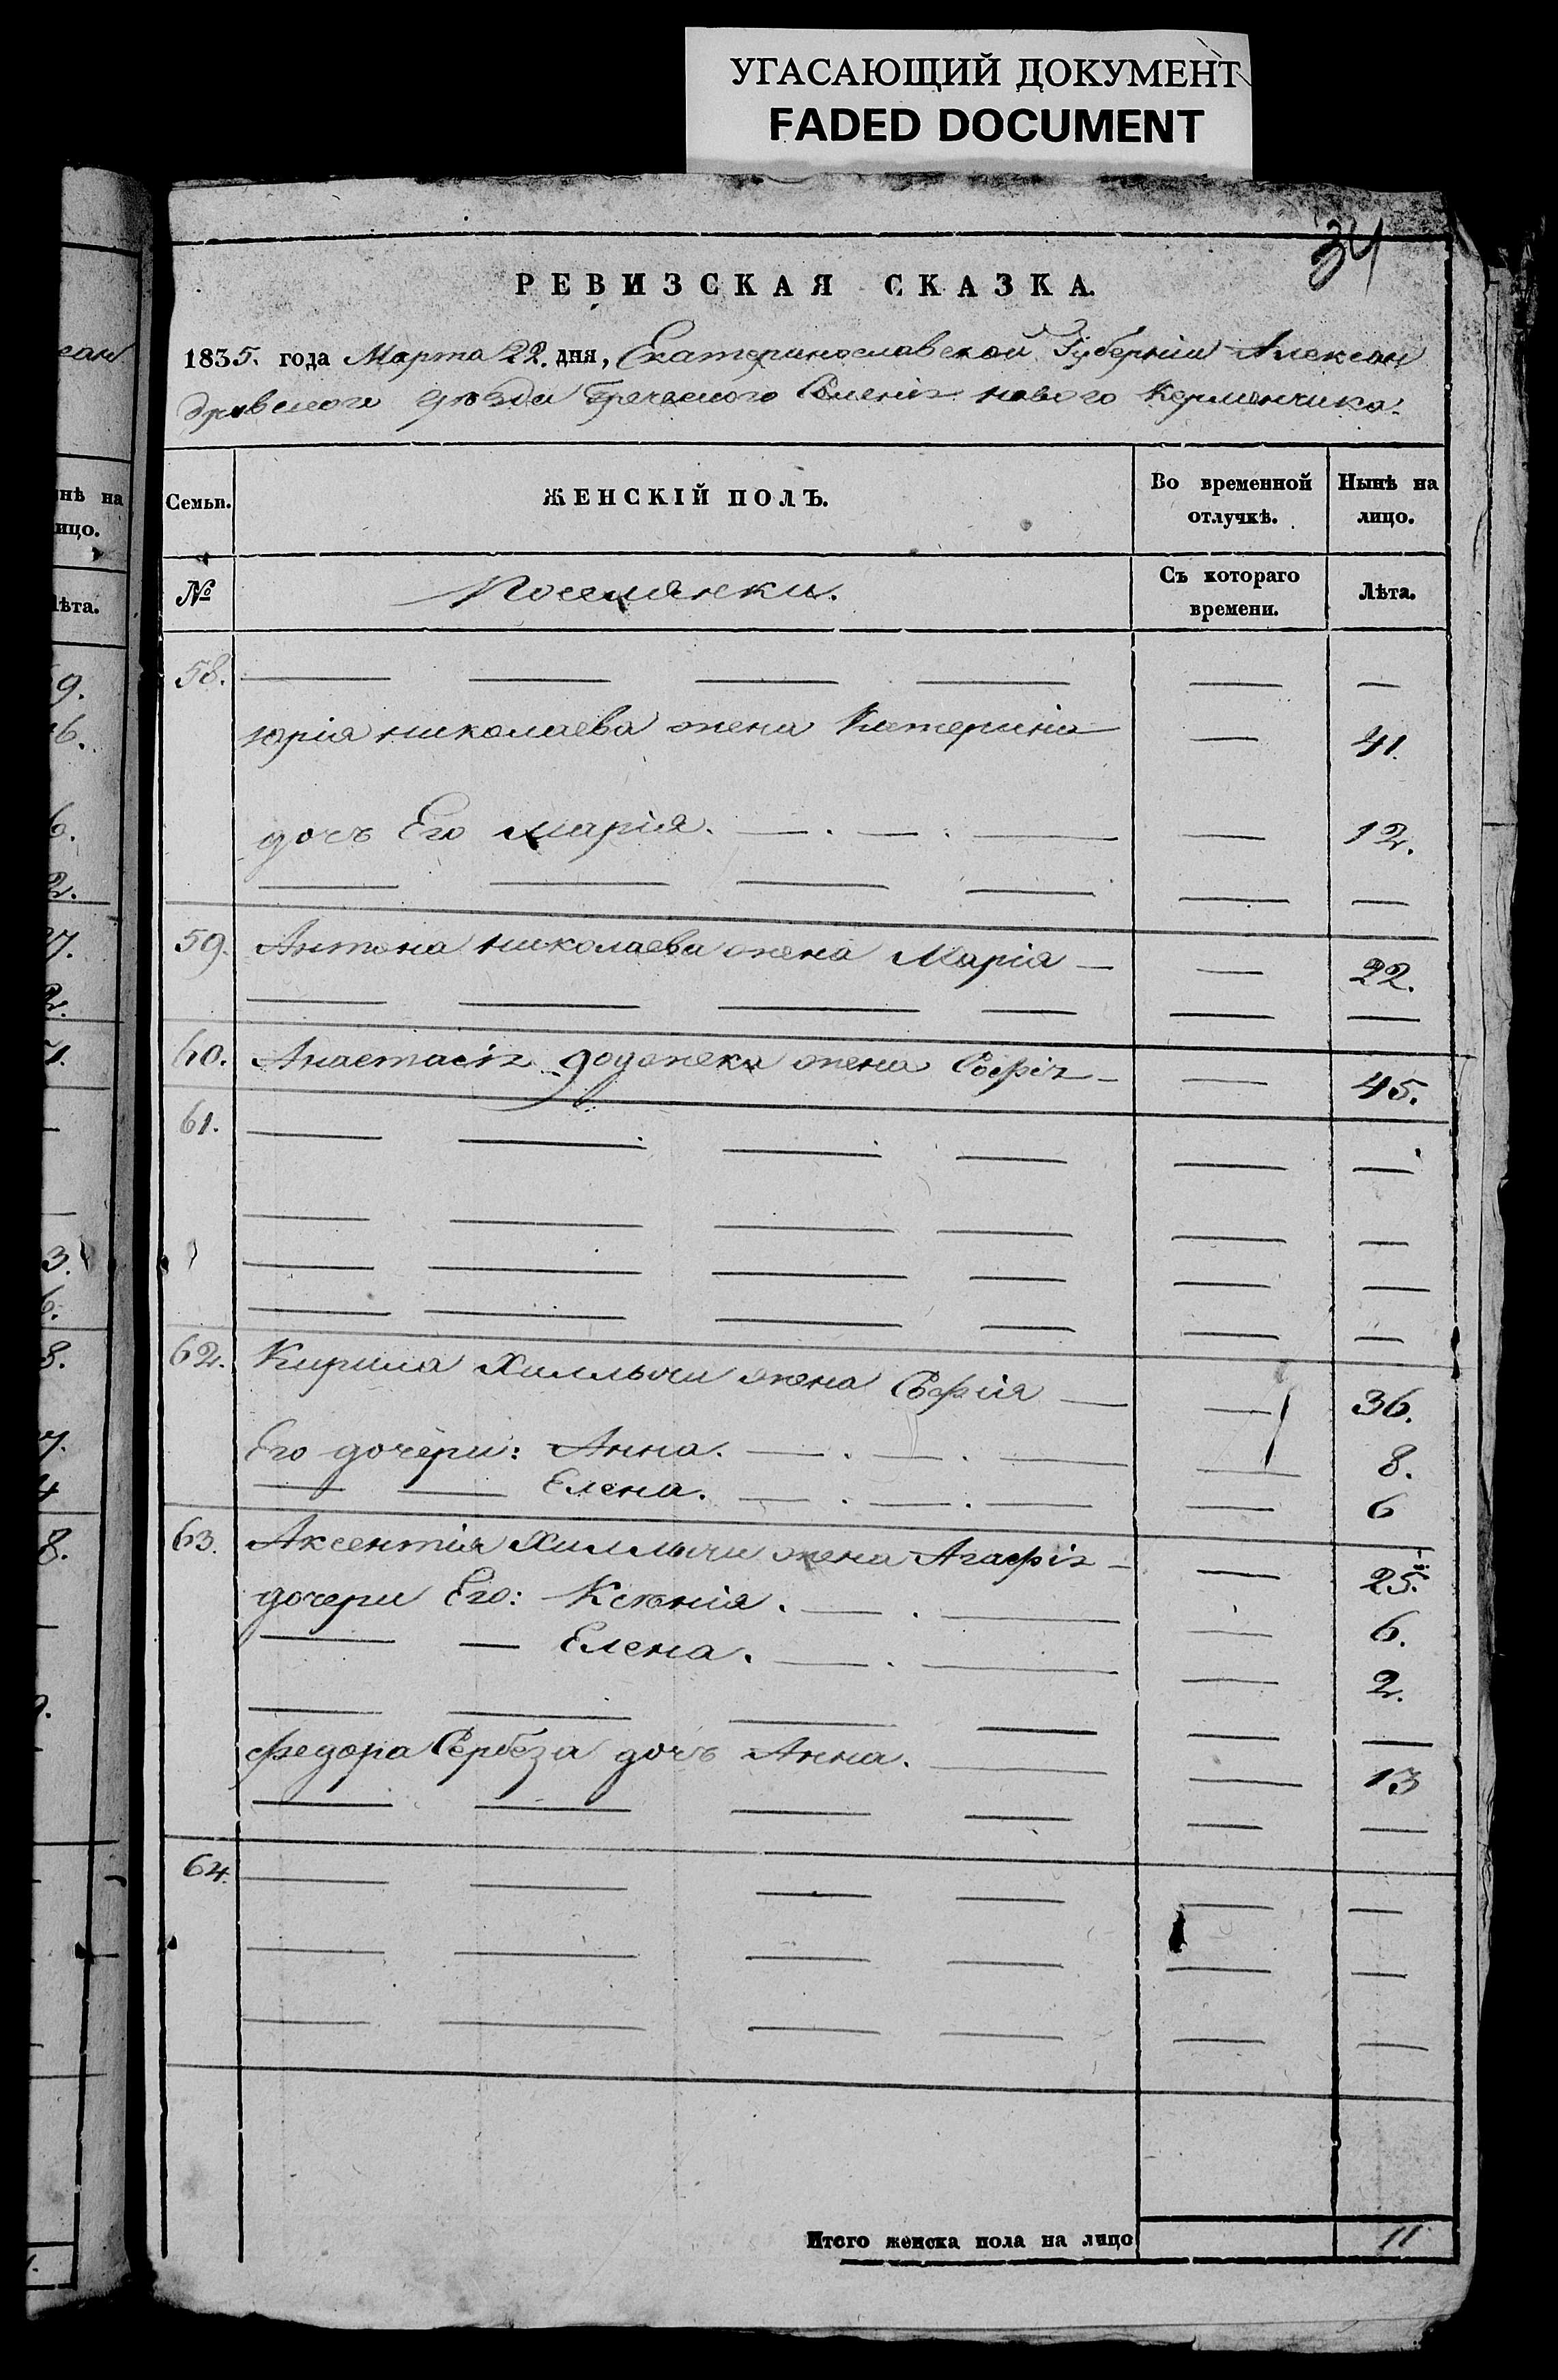 УГАСАЮЩИЙ ДОКУМЕНТ
FADED DOCUMENT
34
РЕВИЗСКАЯ СКАЗКА.
1835. года Марта 22. дня, Екатеринославской Губерніи Алексан
дровского уѣзда Греческого Селенія нового Керменчика.
Семьи.
ЖЕНСКІЙ ПОЛЪ.
Во временной
отлучкѣ.
Нынѣ на
лицо.
№
Поселянки.
Съ котораго
времени.
Лѣта.
58. — — — — — —
юрія николаева жена Катерина — 41.
дочь Его марія. — . — . — — 12.
— — — — — —
59. Антона николаева жена Марія — — 22.
— — — — — —
60. Анастасія жена Софія — — 45.
61. — — — — — —
— — — — — —
— — — — — —
— — — — — —
62. Кирила Хиллычи жена Софія — — 36.
Его дочери: Анна. — . — . — — 8.
— — Елена. — . — . — — 6
63. Аксентія Хиллычи жена Агафія — — 25.
дочери Его: Ксенія. — . — — 6.
— — Елена. — . — — 2.
— — — — — —
федора Сербеза дочь Анна. — — 13
— — — — — —
64. — — — — — —
— — — — — —
— — — — — —
Итого женска пола на лицо 11